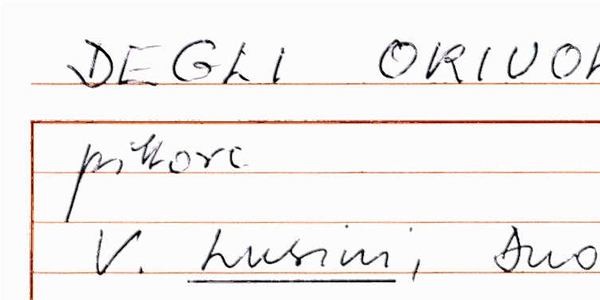 DEGLI ORIUOL
pittore
V. Lusini, Duo